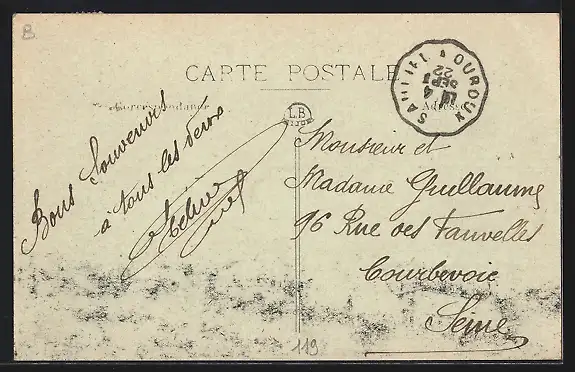 B
CARTE POSTALE
Correspondance
Adresse
L.B
DIJON
SAULIEU A OUROUX
4
SEPT
22
Bons Souvenirs
à tous les deux
Monsieur et
Madame Guillaume
96 Rue des Fauvelles
Courbevoie
Seine
119